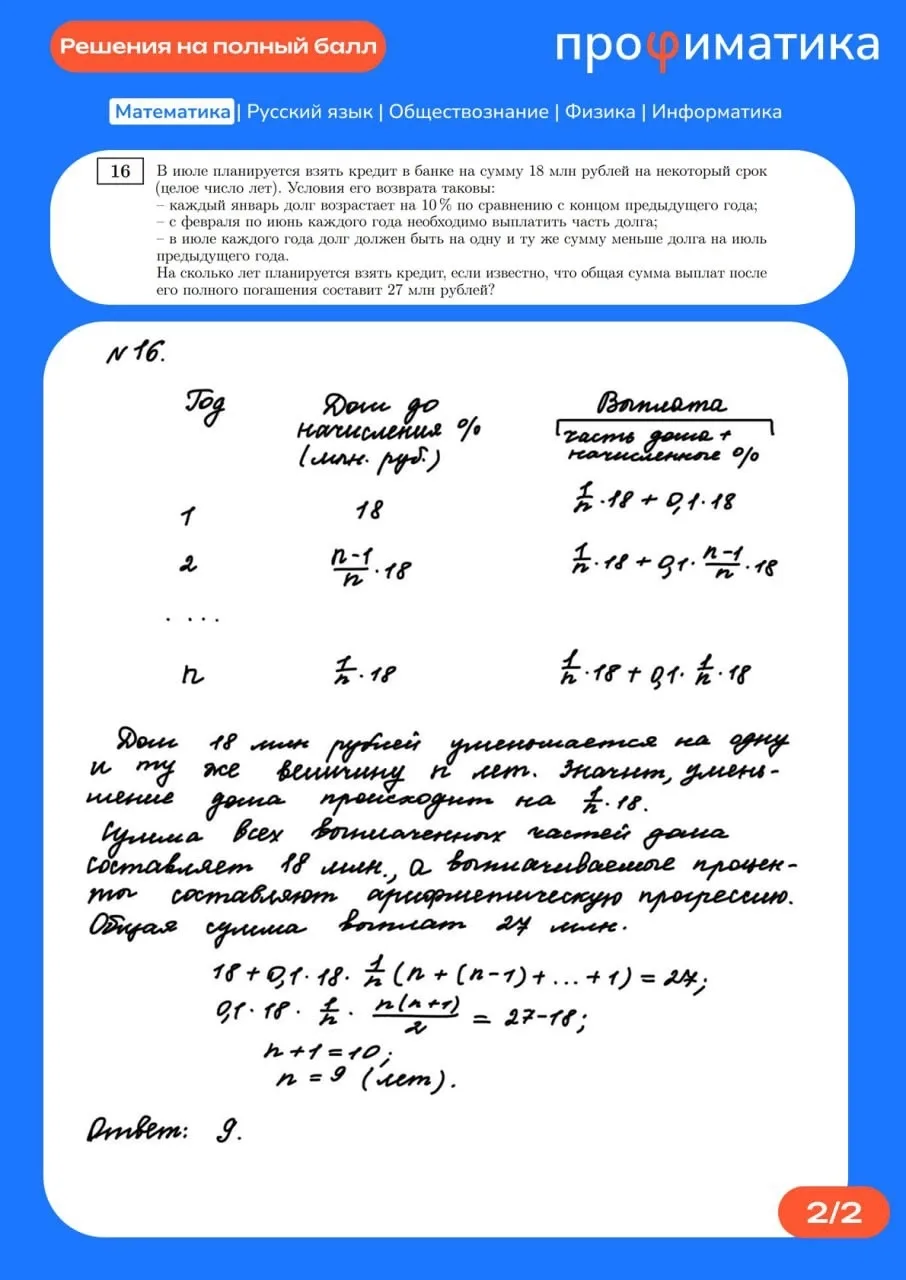 Решения на полный балл
профиматика
Математика | Русский язык | Обществознание | Физика | Информатика
16 В июле планируется взять кредит в банке на сумму 18 млн рублей на некоторый срок
(целое число лет). Условия его возврата таковы:
– каждый январь долг возрастает на 10 % по сравнению с концом предыдущего года;
– с февраля по июнь каждого года необходимо выплатить часть долга;
– в июле каждого года долг должен быть на одну и ту же сумму меньше долга на июль
предыдущего года.
На сколько лет планируется взять кредит, если известно, что общая сумма выплат после
его полного погашения составит 27 млн рублей?
N 16.
Год Долг до Выплата
начисления % часть долга +
(млн. руб.) начисленные %
1 18 1/n · 18 + 0,1 · 18
2 (n-1)/n · 18 1/n · 18 + 0,1 · (n-1)/n · 18
. ...
n 1/n · 18 1/n · 18 + 0,1 · 1/n · 18
Долг 18 млн рублей уменьшается на одну
и ту же величину n лет. Значит, умень-
шение долга происходит на 1/n · 18.
Сумма всех выплаченных частей долга
составляет 18 млн., а выплачиваемые процен-
ты составляют арифметическую прогрессию.
Общая сумма выплат 27 млн.
18 + 0,1 · 18 · 1/n (n + (n-1) + ... + 1) = 27;
0,1 · 18 · 1/n · n(n+1)/2 = 27-18;
n + 1 = 10;
n = 9 (лет).
Ответ: 9.
2/2